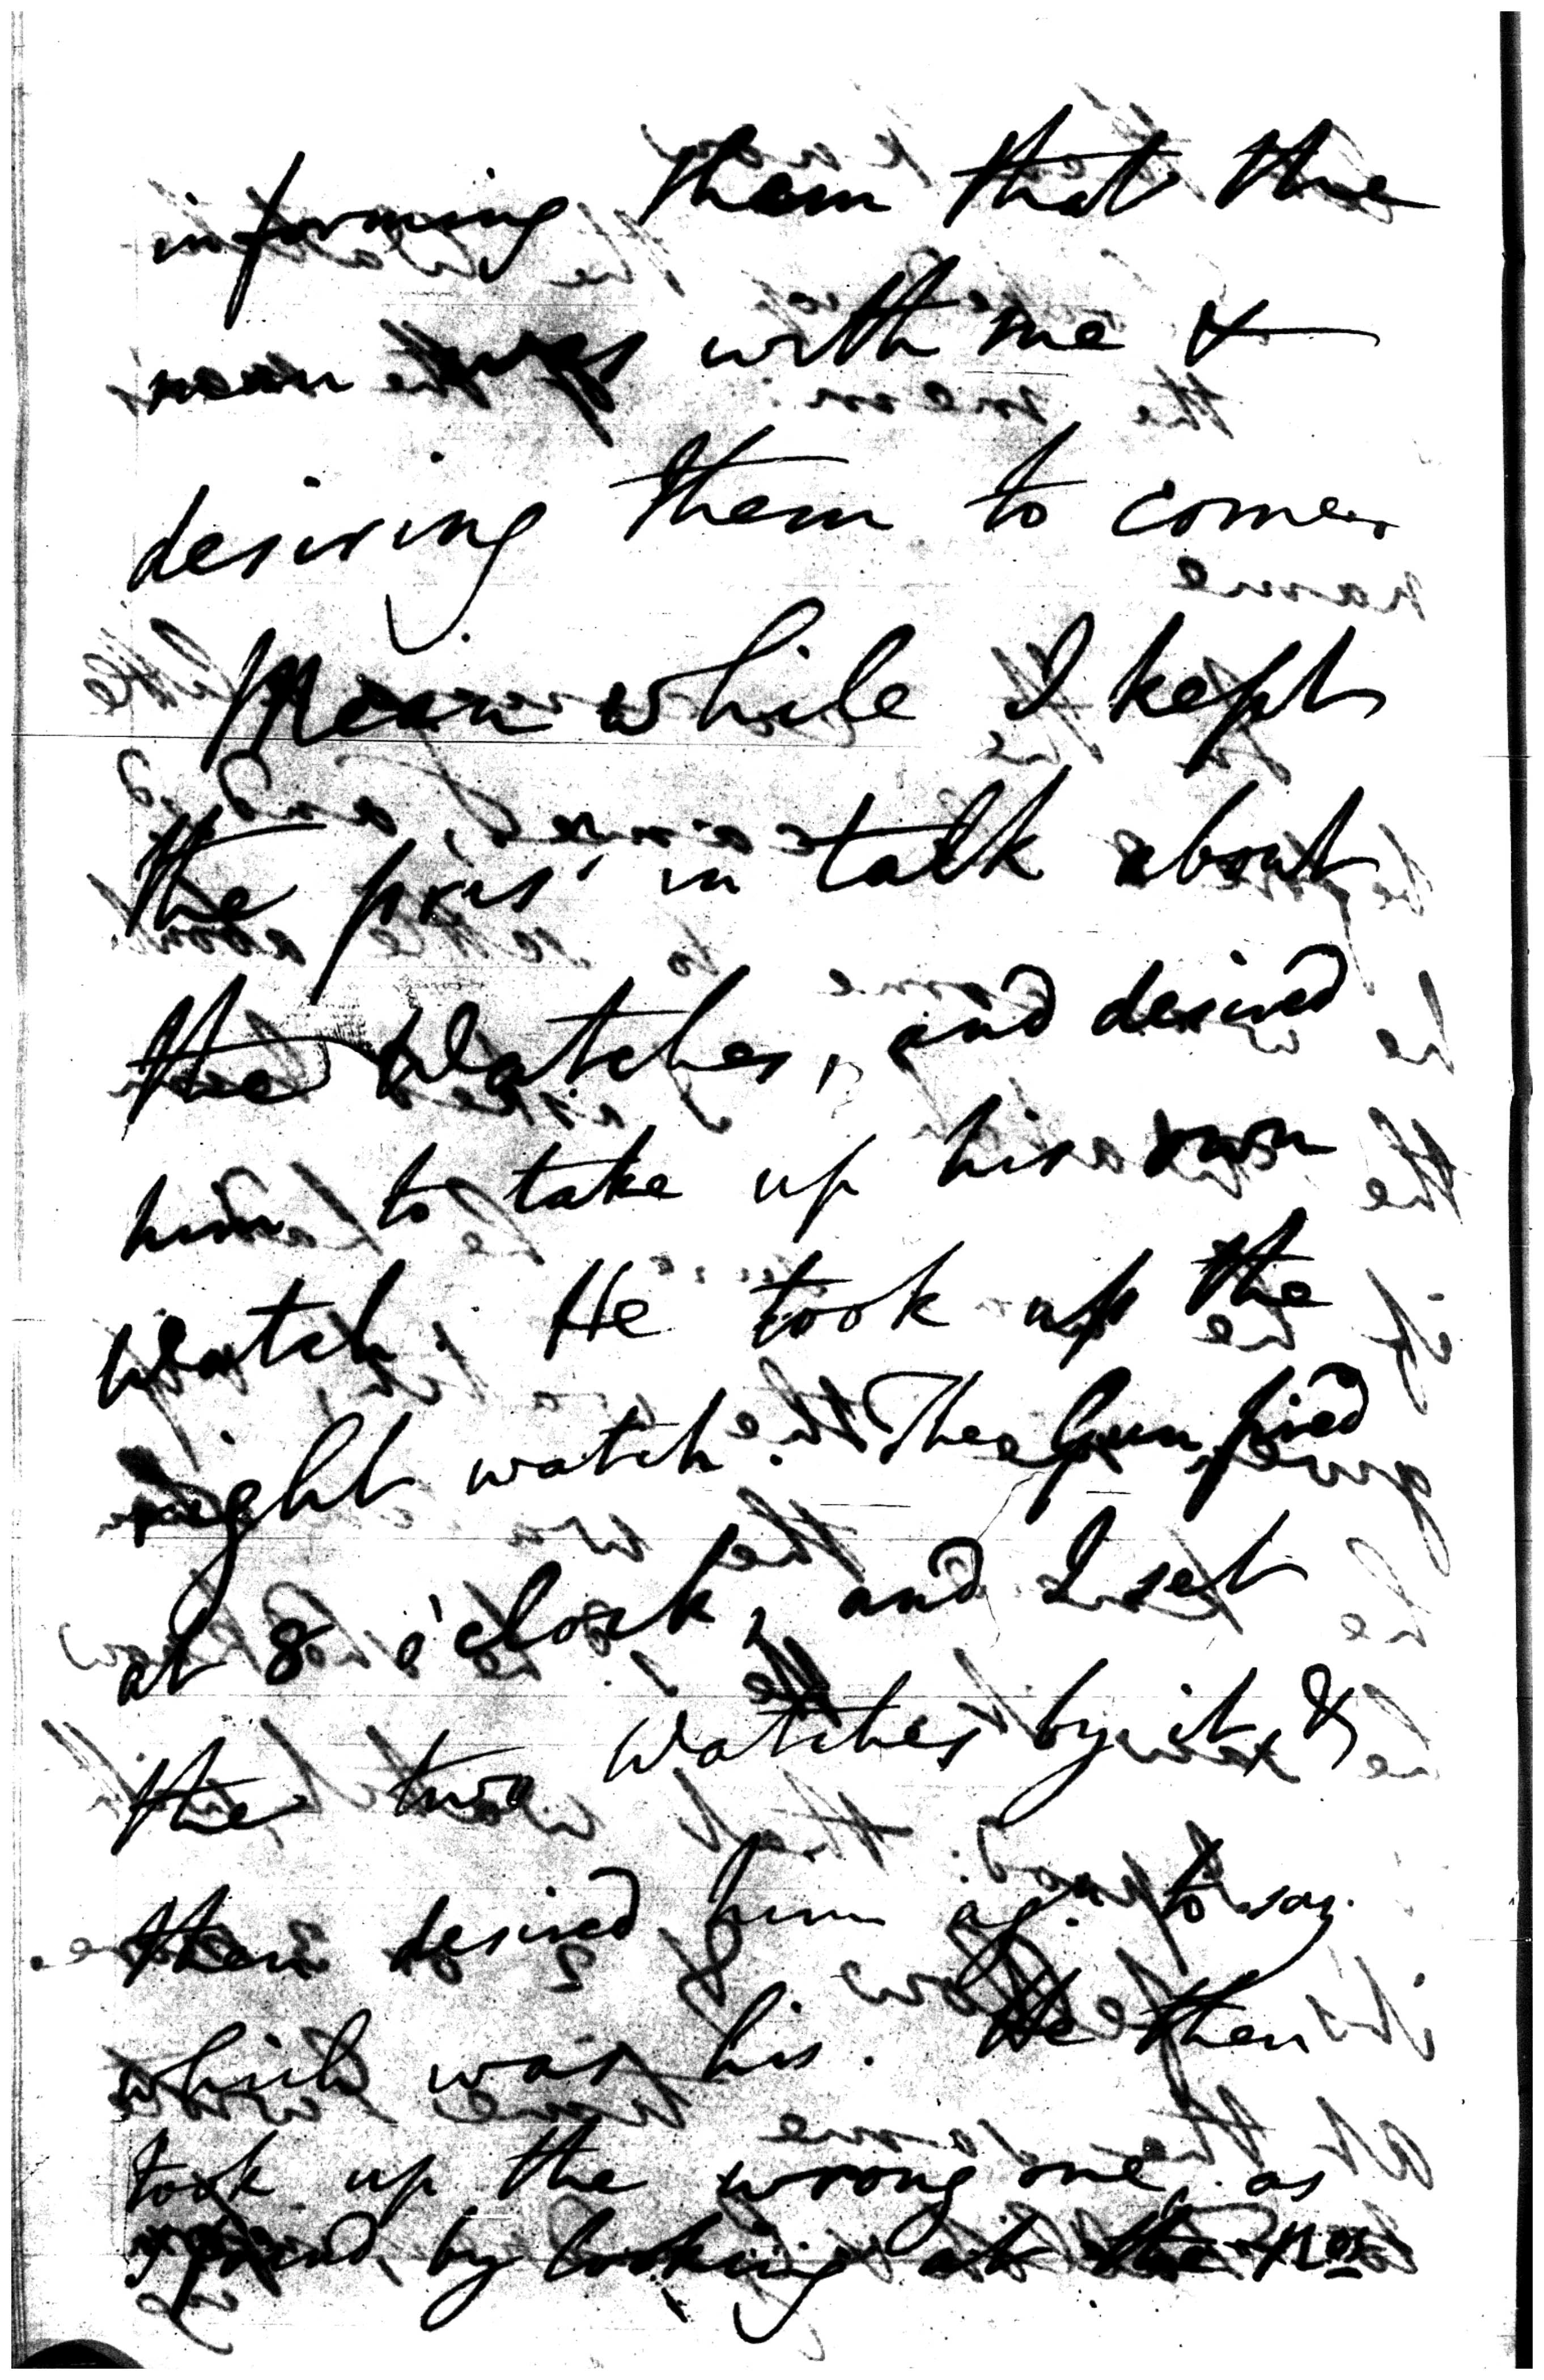 informing them that the
man was with me &
desiring them to come.
Meanwhile I kept
the pris' in talk about
the Watches, and desired
him to take up his own
Watch. He took up the
right watch. The Gun fired
at 8 o'clock, and I set
the two Watches by it &
then desired him ag. to say
which was his. He then
took up the wrong one, as
I found by looking at the Nos